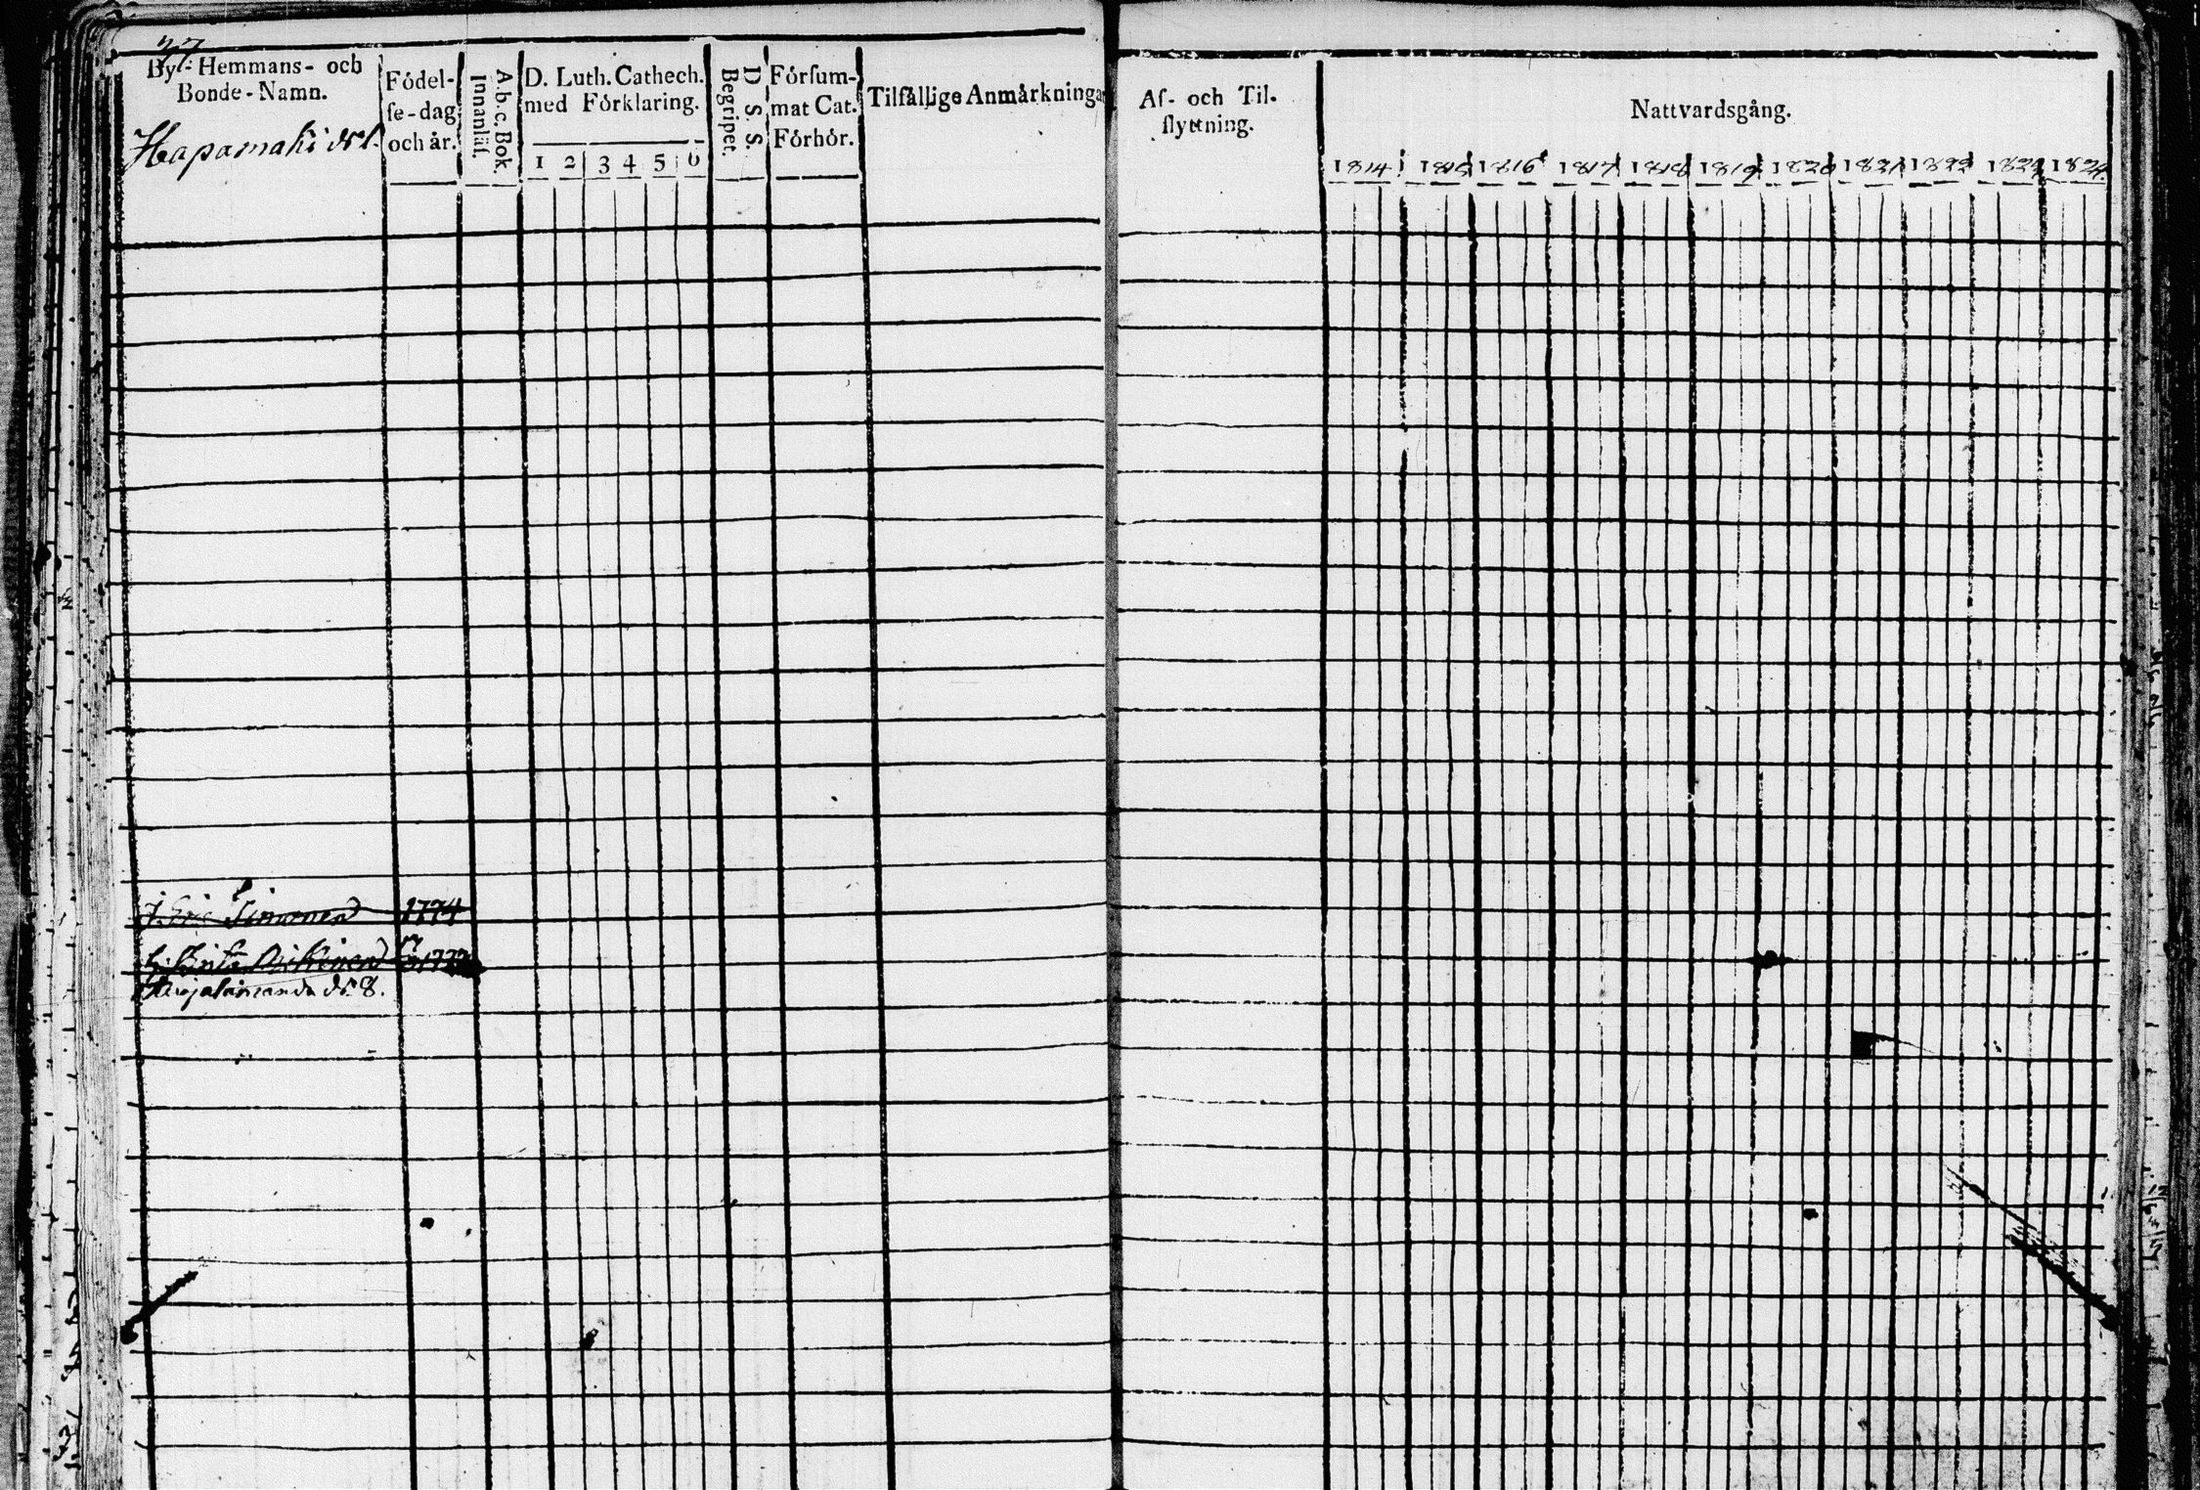 27
By- Hemmans- och
Bonde-Namn.
Hapamaki
Fódel-
se-dag
och år.
A.b.c. Bok.
Innanläs.
D. Luth. Cathech.
med Fórklaring.
1 2 3 4 5 6
D. S. S.
Begripet.
Fórsum-
mat Cat.
Fórhór.
Tilfällige Anmärkningar
Af- och Til-
flyttning.
Nattvardsgång.
1814 1815 1816 1817 1818 1819 1820 1821 1822 1823 1824
Simonen 1774